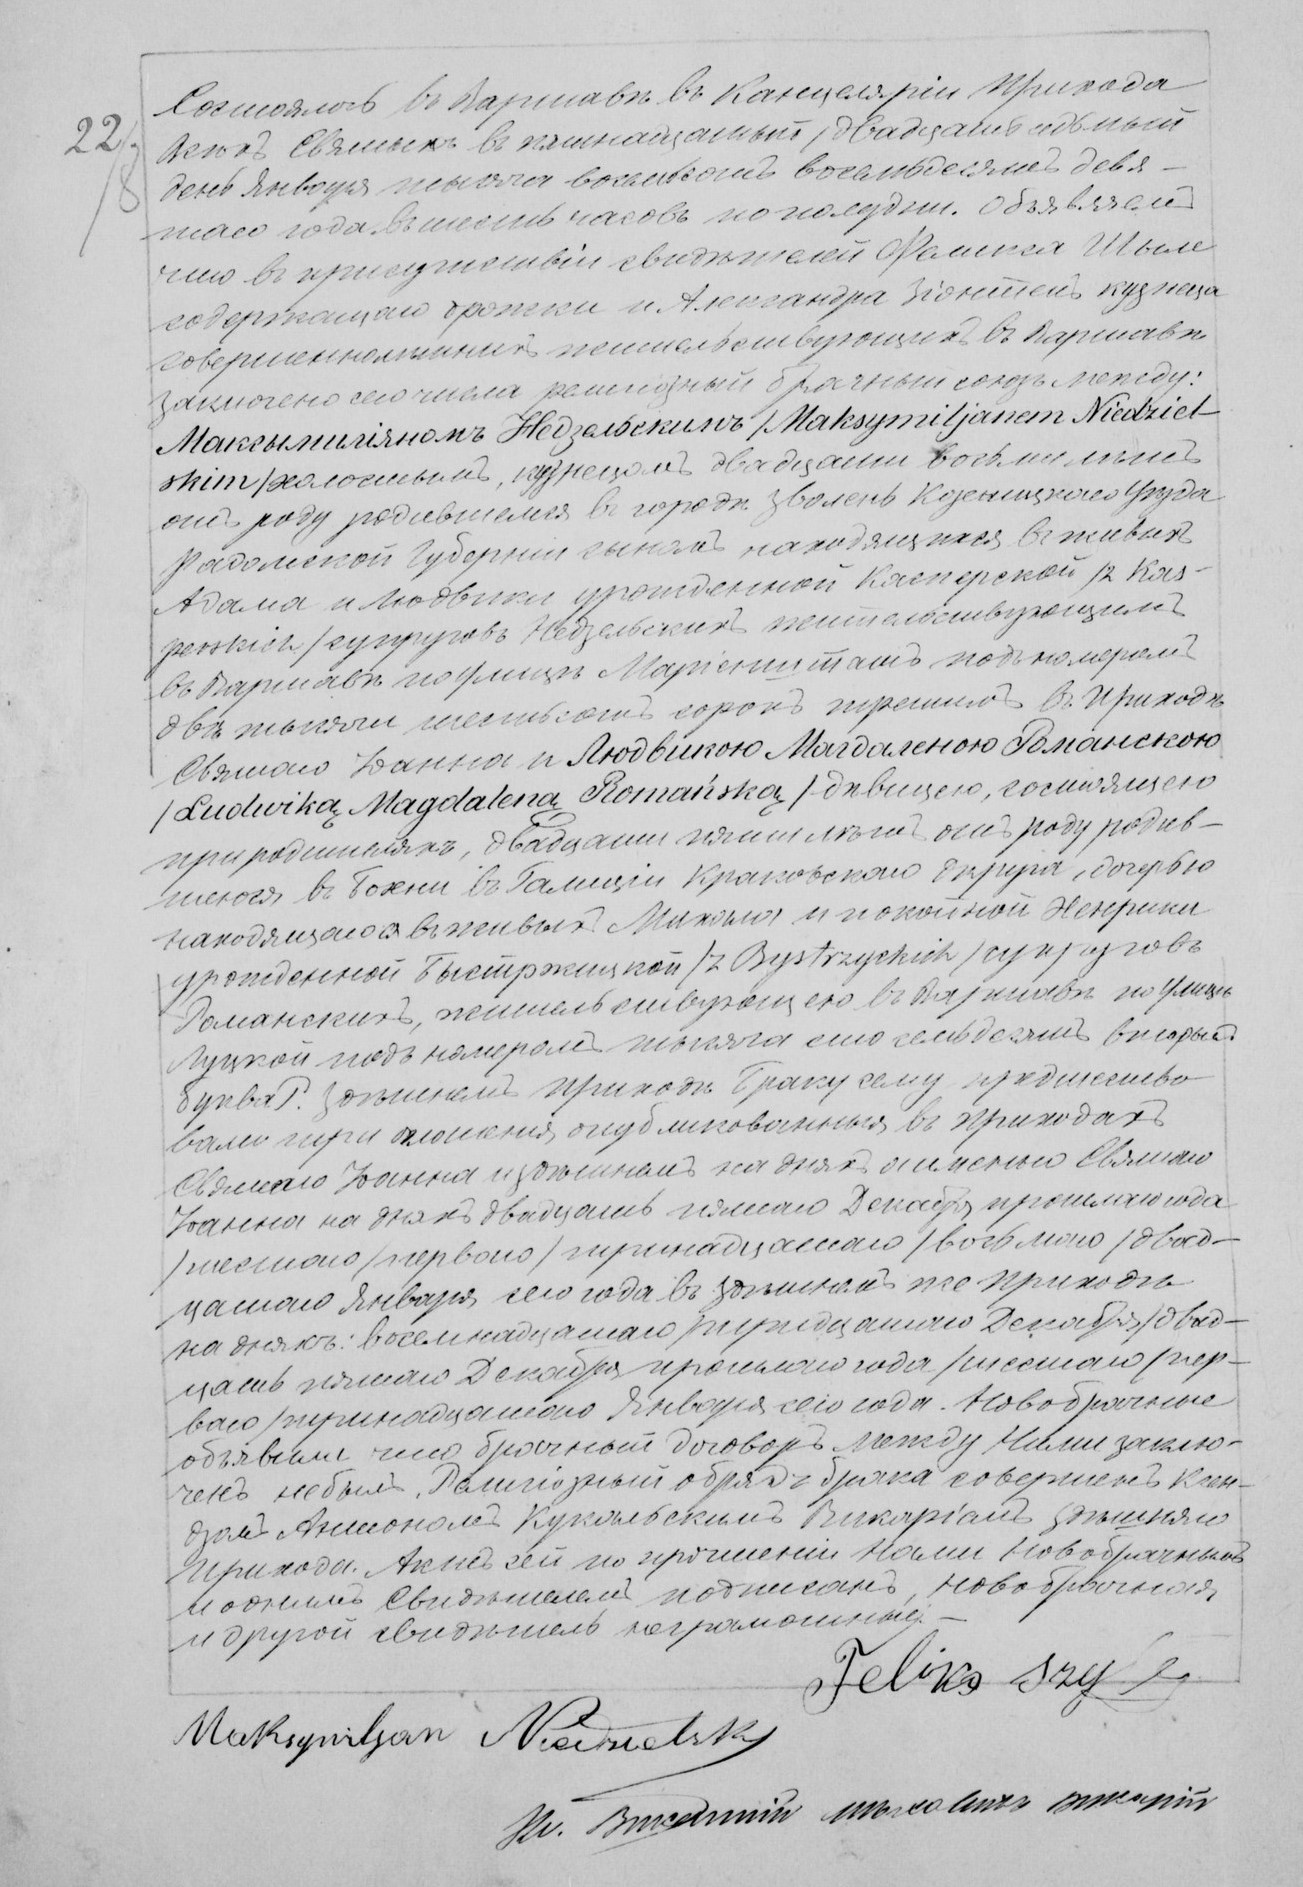 22/
18
Состоялось въ Варшавѣ въ Канцеляріи Прихода
Всѣхъ Святыхъ въ пятнадцатый /двадцать седьмый
день Января тысяча восемьсотъ восемьдесятъ девя-
таго года въ шесть часовъ по полудни. Объявляемъ
что въ присутствіи свидѣтелей Феликса Шыле
содержащаго дрожки и Александра кузнеца
совершеннолѣтнихъ жительствующихъ въ Варшавѣ
заключено сего числа религіозный брачный союзъ между:
Максымиліяномъ Недзельскимъ /Maksymiljanem Niedziel-
skim/ холостымъ, кузнецомъ двадцати восьми лѣтъ
отъ роду родившемся въ городѣ Зволень Козеницкаго Уѣзда
Радомской Губерніи сыномъ находящихся въ живыхъ
Адама и Людвики урожденной Касперской /z Kas-
perskich/ супруговъ Недзельскихъ жительствующимъ
въ Варшавѣ по улицѣ Маріенштатъ подъ номеромъ
двѣ тысячи шестьсотъ сорокъ третимъ въ Приходѣ
Святаго Іоанна и Людвикою Магдаленою Романскою
/Ludwiką Magdaleną Romańską/ дѣвицею, состоящею
при родителяхъ, двадцати пяти лѣтъ отъ роду родив-
шеюся въ Бохни въ Галиціи Краковскаго Округа, дочерью
находящагося въ живыхъ Михала и покойной Хенрики
урожденной Быстржицкой /z Bystrzyckich/ супруговъ
Романскихъ, жительствующею въ Варшавѣ по улицѣ
Луцкой подъ номеромъ тысяча сто семьдесятъ вторымъ
буква Р. здѣшнемъ Приходѣ Браку сему предшество
вали три оглашенія опубликованныя въ Приходахъ
Святаго Іоанна и здѣшнемъ на дняхъ а именно Святаго
Іоанна на дняхъ двадцать пятаго Декабря прошлаго года
/шестаго /перваго /тринадцатаго /восьмаго /двад-
цатаго Января сего года въ здѣшнемъ же Приходѣ
на дняхъ: восемнадцатаго /тридцатаго Декабря /двад-
цать пятаго Декабря прошлаго года /шестаго /пер-
ваго /тринадцатаго Января сего года. Новобрачные
объявили что брачный договоръ между ними заклю-
ченъ небылъ. Религіозный обрядъ брака совершенъ Ксен-
дзомъ Антономъ Викаріемъ здѣшняго
Прихода. Актъ сей по прочтеніи Нами Новобрачнымъ
и однимъ Свидѣтелемъ подписанъ, новобрачная
и другой свидѣтель неграмотны. –
Feliks Szy
Maksymiljan Niedzielski
викарій